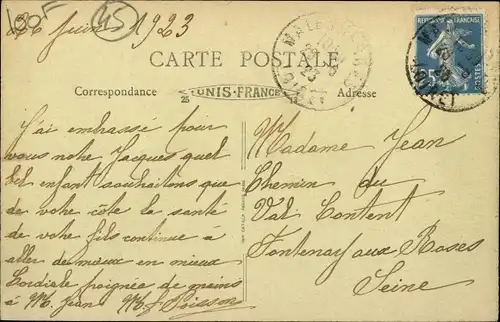 Juin 1923
45
CARTE POSTALE
Correspondance
25 UNIS-FRANCE
Adresse
REPUBLIQUE FRANÇAISE
POSTES
J'ai embrassé pour
vous notre Jacques quel
bel enfant souhaitons que
de votre côte la santé
de votre fils continue à
aller de mieux en mieux
Cordiale poignée de mains
à M. Jean M. L
Madame Jean
Chemin du
Val Content
Fontenay aux Roses
Seine